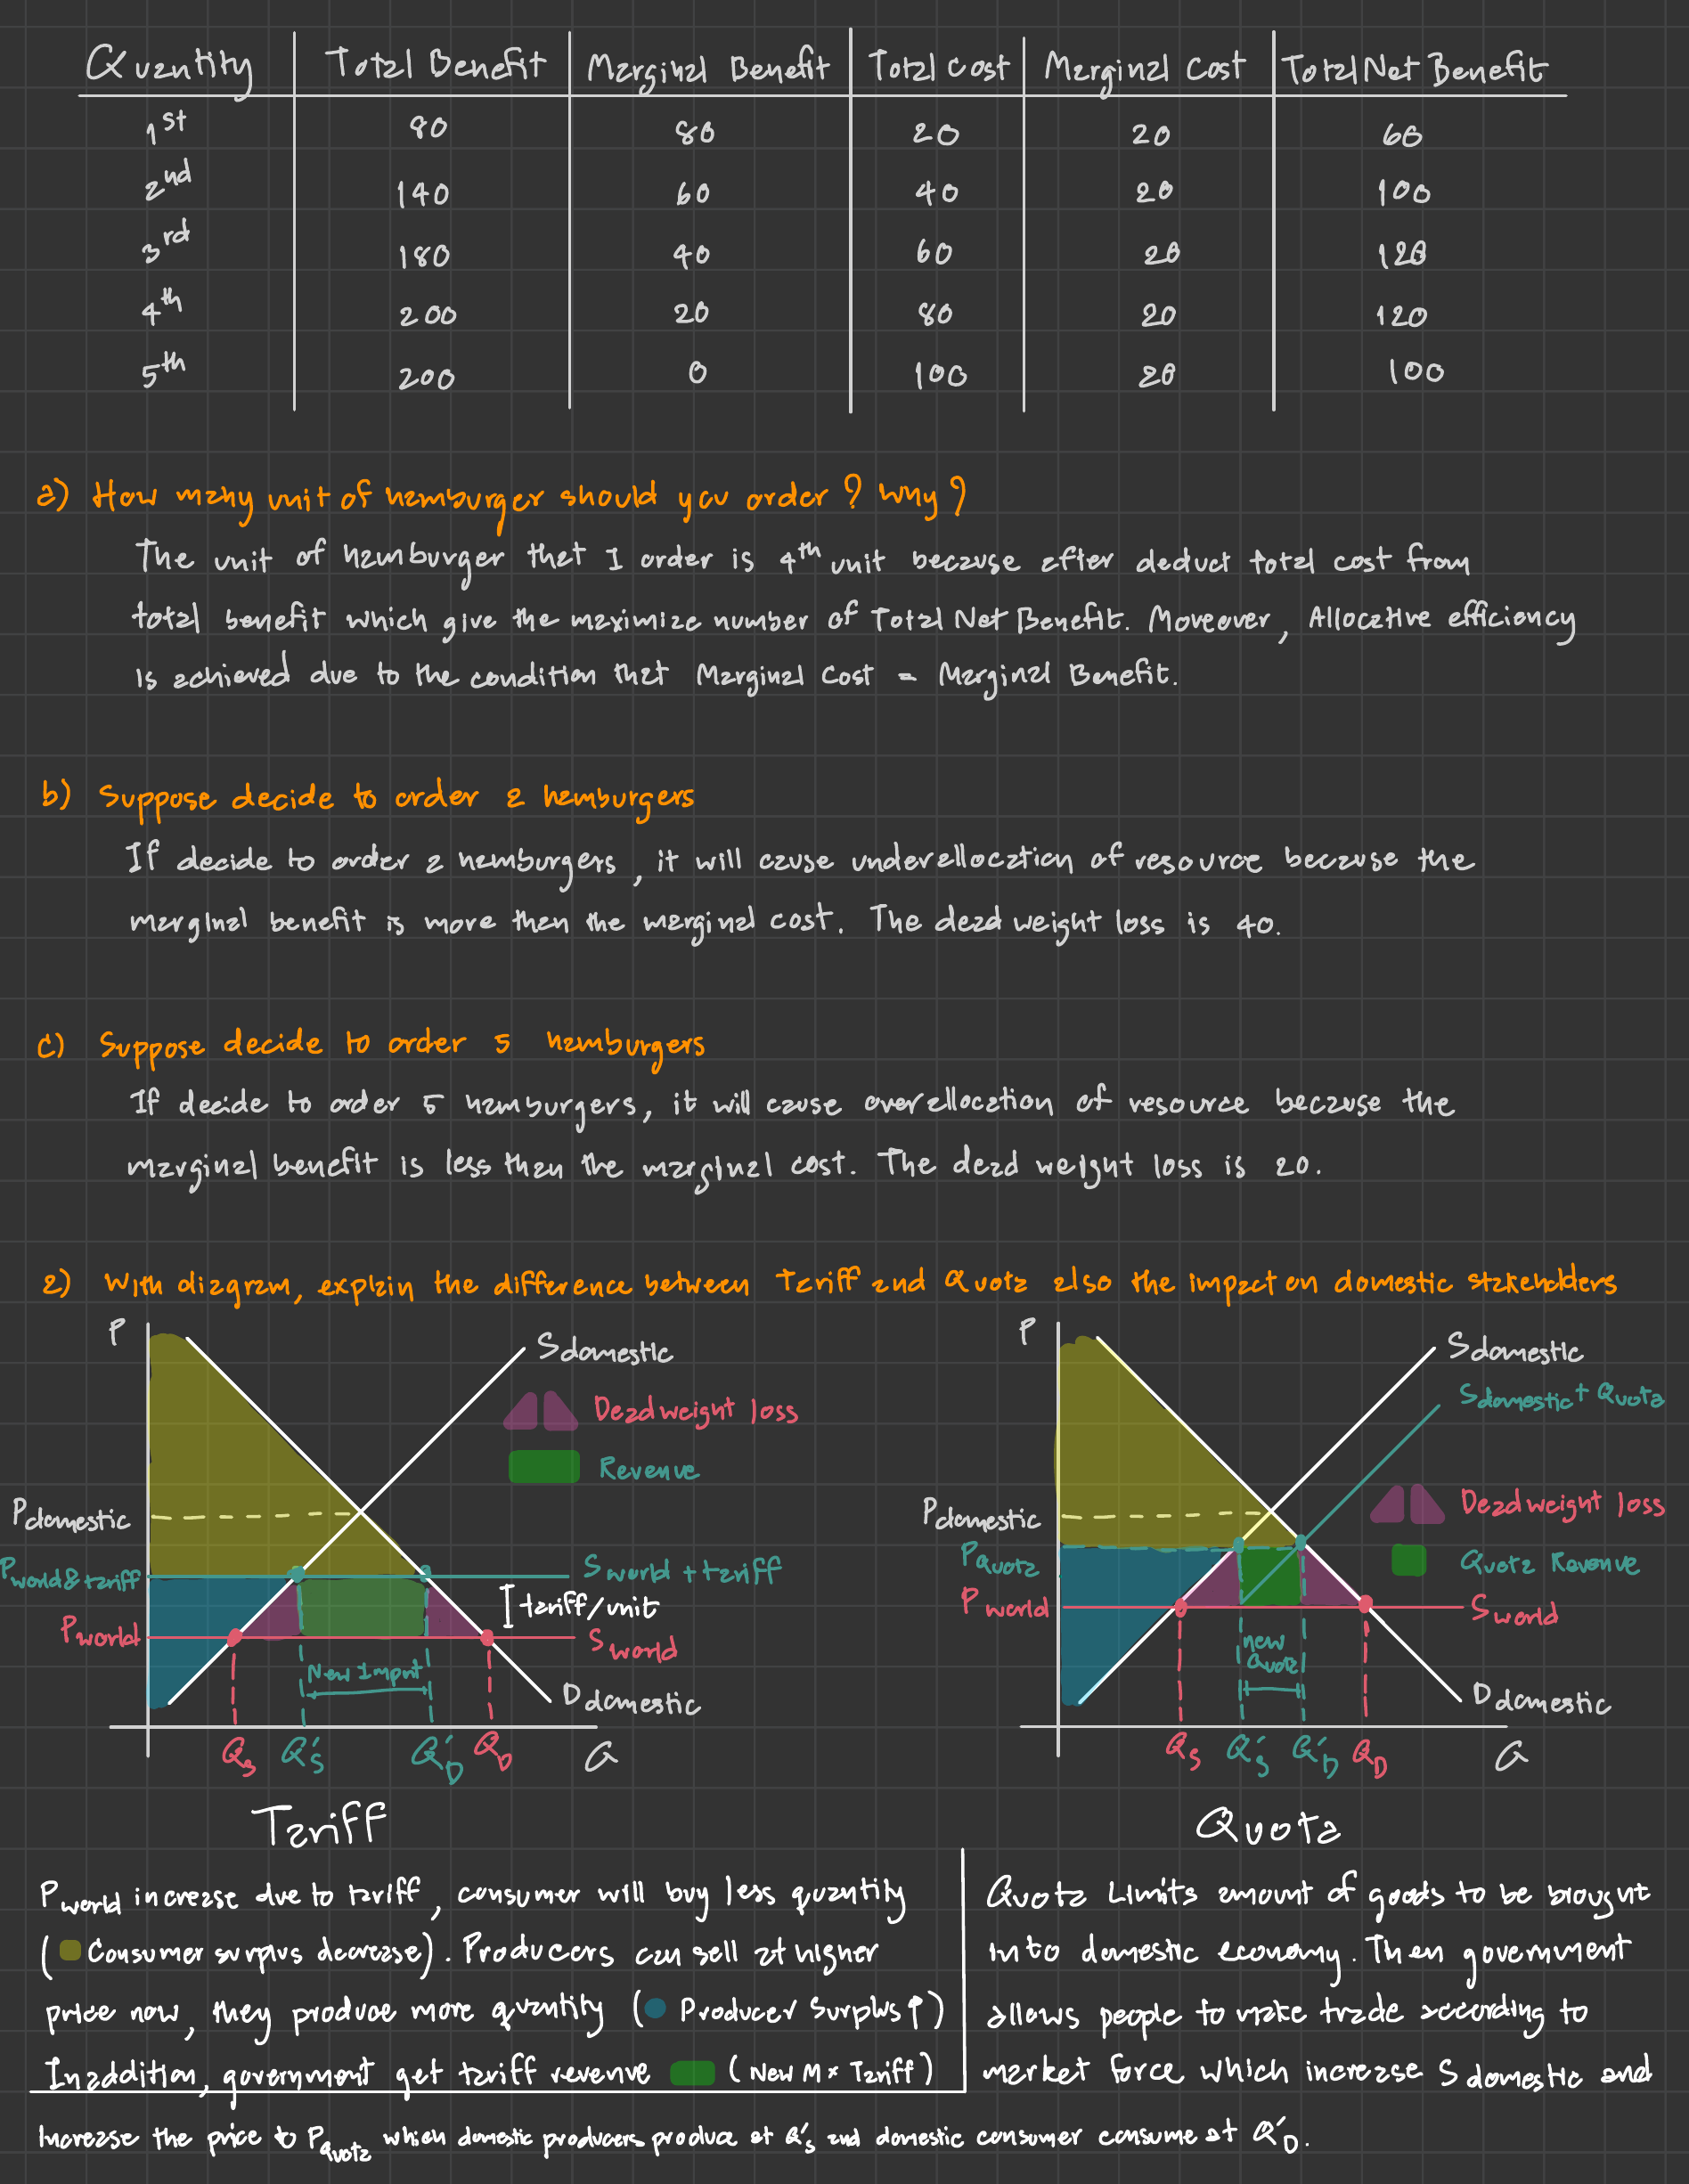 Quantity Total Benefit Marginal Benefit Total Cost Marginal Cost Total Net Benefit
1st 80 80 20 20 60
2nd 140 60 40 20 100
3rd 180 40 60 20 120
4th 200 20 80 20 120
5th 200 0 100 20 100
a) How many unit of hamburger should you order? Why?
The unit of hamburger that I order is 4th unit because after deduct total cost from
total benefit which give the maximize number of Total Net Benefit. Moreover, Allocative efficiency
is achieved due to the condition that Marginal Cost = Marginal Benefit.
b) Suppose decide to order 2 hamburgers
If decide to order 2 hamburgers, it will cause underallocation of resource because the
marginal benefit is more than the marginal cost. The dead weight loss is 40.
c) Suppose decide to order 5 hamburgers
If decide to order 5 hamburgers, it will cause overallocation of resource because the
marginal benefit is less than the marginal cost. The dead weight loss is 20.
2) With diagram, explain the difference between Tariff and Quota also the impact on domestic stakeholders
P
Sdomestic
Deadweight loss
Revenue
Pdomestic
Pworld&tariff
Sworld+tariff
tariff/unit
Pworld
Sworld
New Import
Ddomestic
Qs Q's Q'D QD Q
Tariff
P
Sdomestic
Sdomestic + Quota
Deadweight loss
Pdomestic
PQuota
Quota Revenue
Pworld
Sworld
new
Quota
Ddomestic
Qs Q's Q'D QD Q
Quota
Pworld increase due to tariff, consumer will buy less quantity
( Consumer surplus decrease). Producers can sell at higher
price now, they produce more quantity ( Producer Surplus ↑)
Inaddition, government get tariff revenue (New M x Tariff)
Quota Limits amount of goods to be brought
into domestic economy. Then government
allows people to make trade according to
market force which increase Sdomestic and
Increase the price to PQuota which domestic producers produce at Q's and domestic consumer consume at Q'D.